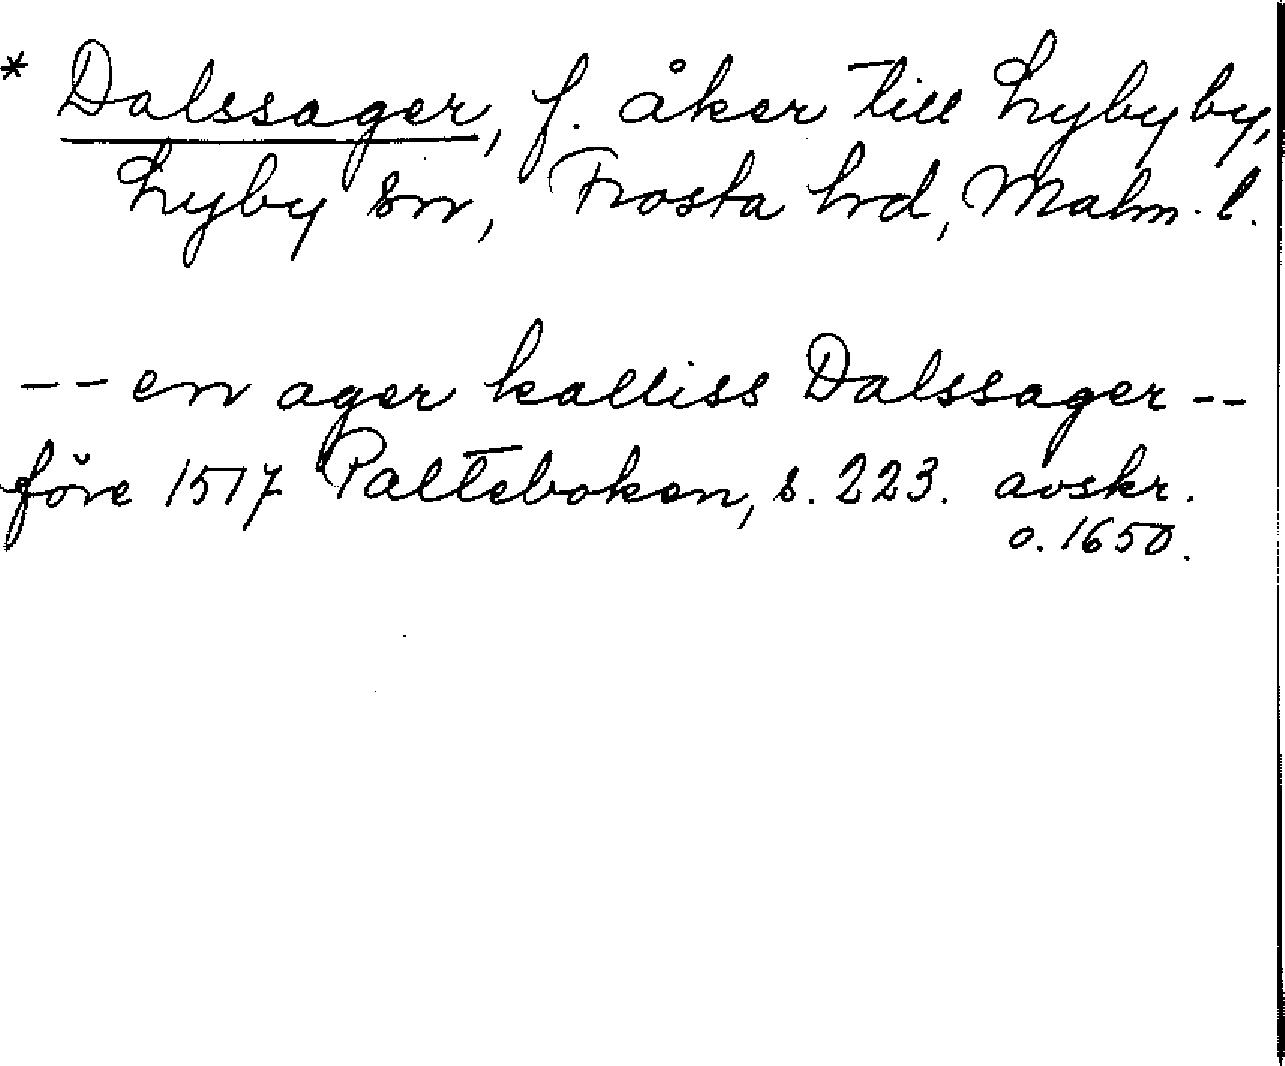 * Dalssager, f. åker till Lyby by,
Lyby sn, Frosta hrd, Malm. l.
-- en ager kalliss Dalssager --
före 1517 Palteboken, s. 223. avskr.
o. 1650.